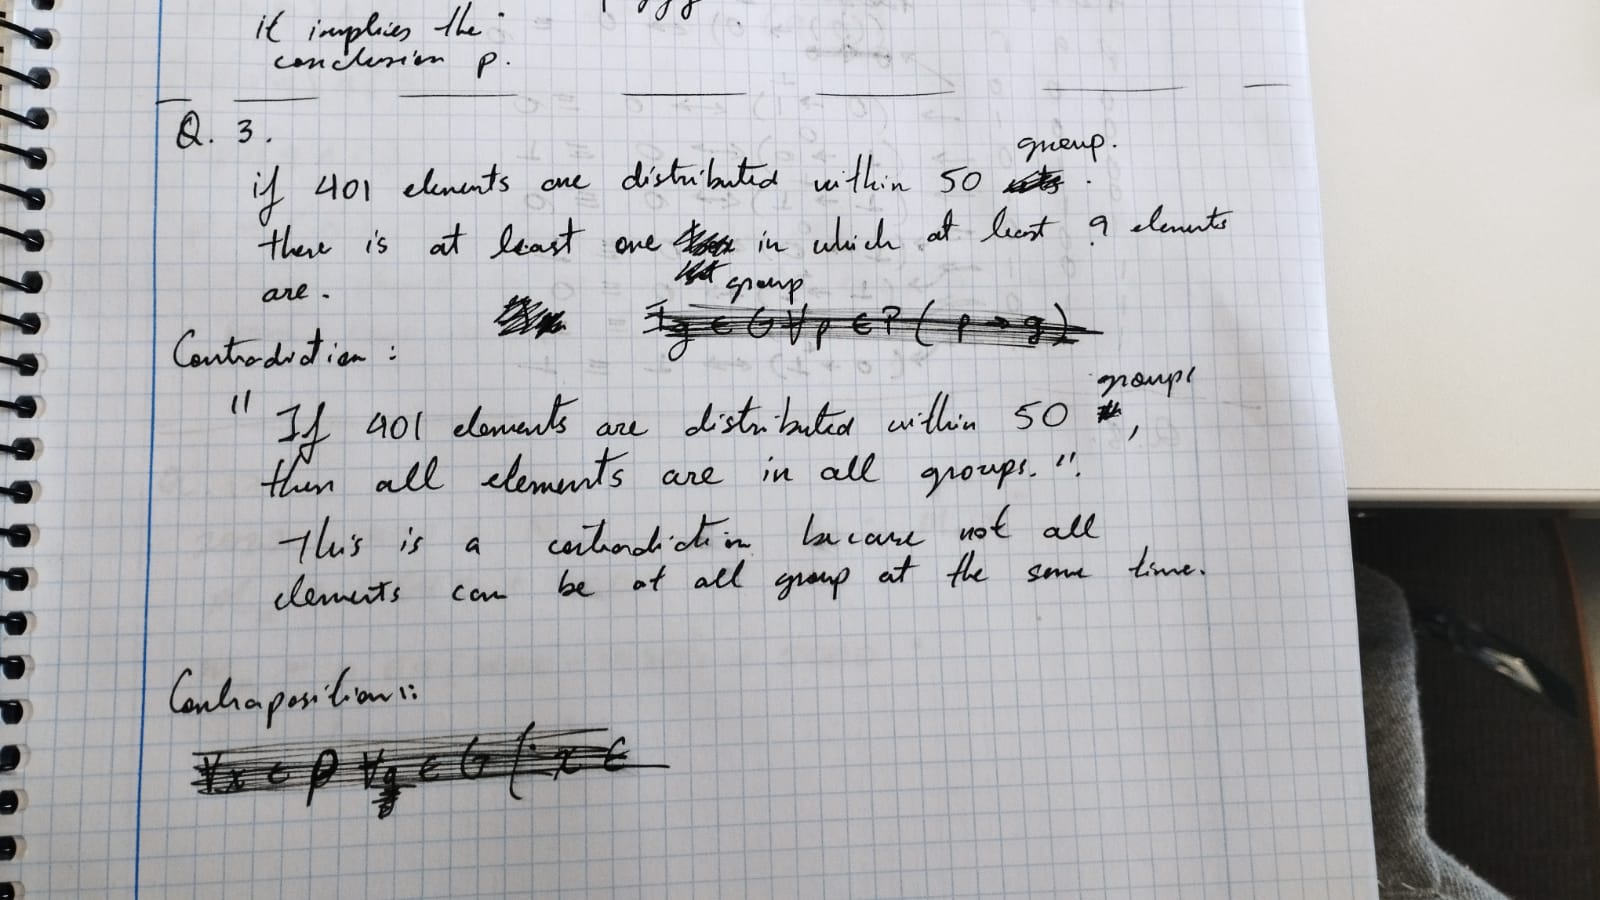 it implies the
conclusion p.
Q. 3.
group.
if 401 elements are distributed within 50
there is at least one in which at least 9 elements
group
are.
∃g ∈ G ∀p ∈ P ( p → g )
Contradiction :
groups
" If 401 elements are distributed within 50 ,
then all elements are in all groups. ".
This is a contradiction because not all
elements can be at all group at the same time.
Contraposition :
∀x ∈ P ∀g ∈ G ( x ∈